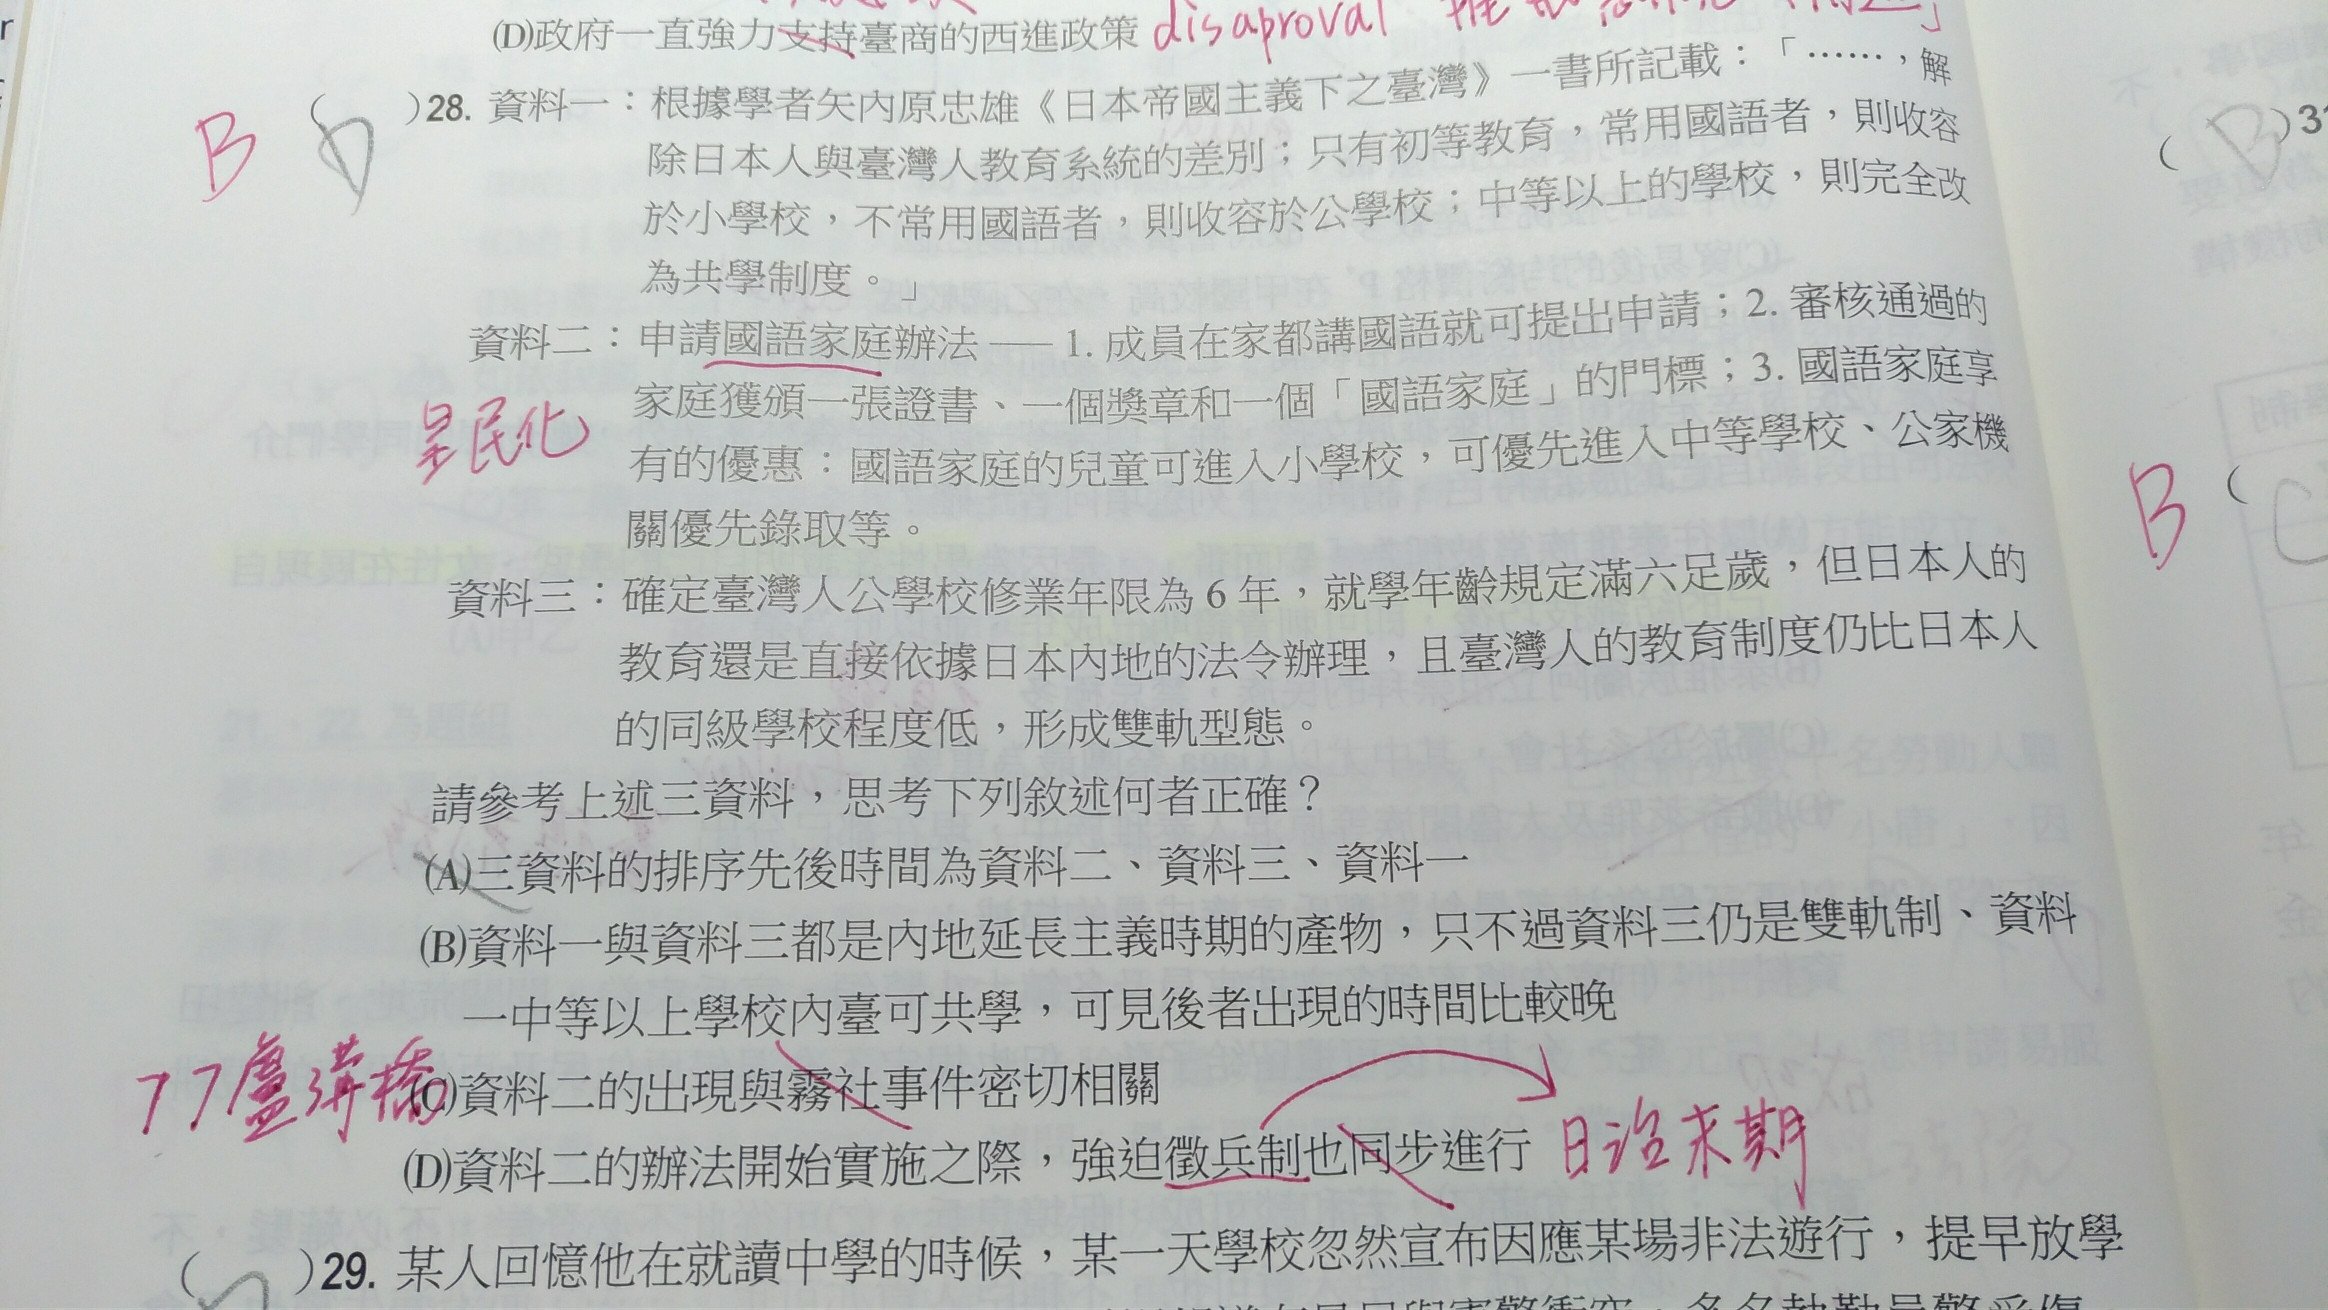 (D)政府一直強力支持臺商的西進政策 disaproval
B ( D )28. 資料一：根據學者矢內原忠雄《日本帝國主義下之臺灣》一書所記載：「……，解
除日本人與臺灣人教育系統的差別；只有初等教育，常用國語者，則收容
於小學校，不常用國語者，則收容於公學校；中等以上的學校，則完全改
為共學制度。」
資料二：申請國語家庭辦法 — 1. 成員在家都講國語就可提出申請；2. 審核通過的
家庭獲頒一張證書、一個獎章和一個「國語家庭」的門標；3. 國語家庭享
皇民化
有的優惠：國語家庭的兒童可進入小學校，可優先進入中等學校、公家機
關優先錄取等。
資料三：確定臺灣人公學校修業年限為 6 年，就學年齡規定滿六足歲，但日本人的
教育還是直接依據日本內地的法令辦理，且臺灣人的教育制度仍比日本人
的同級學校程度低，形成雙軌型態。
請參考上述三資料，思考下列敘述何者正確？
(A)三資料的排序先後時間為資料二、資料三、資料一
(B)資料一與資料三都是內地延長主義時期的產物，只不過資料三仍是雙軌制、資料
一中等以上學校內臺可共學，可見後者出現的時間比較晚
77盧溝橋
(C)資料二的出現與霧社事件密切相關
(D)資料二的辦法開始實施之際，強迫徵兵制也同步進行 日治末期
( )29. 某人回憶他在就讀中學的時候，某一天學校忽然宣布因應某場非法遊行，提早放學
( B )31
B (